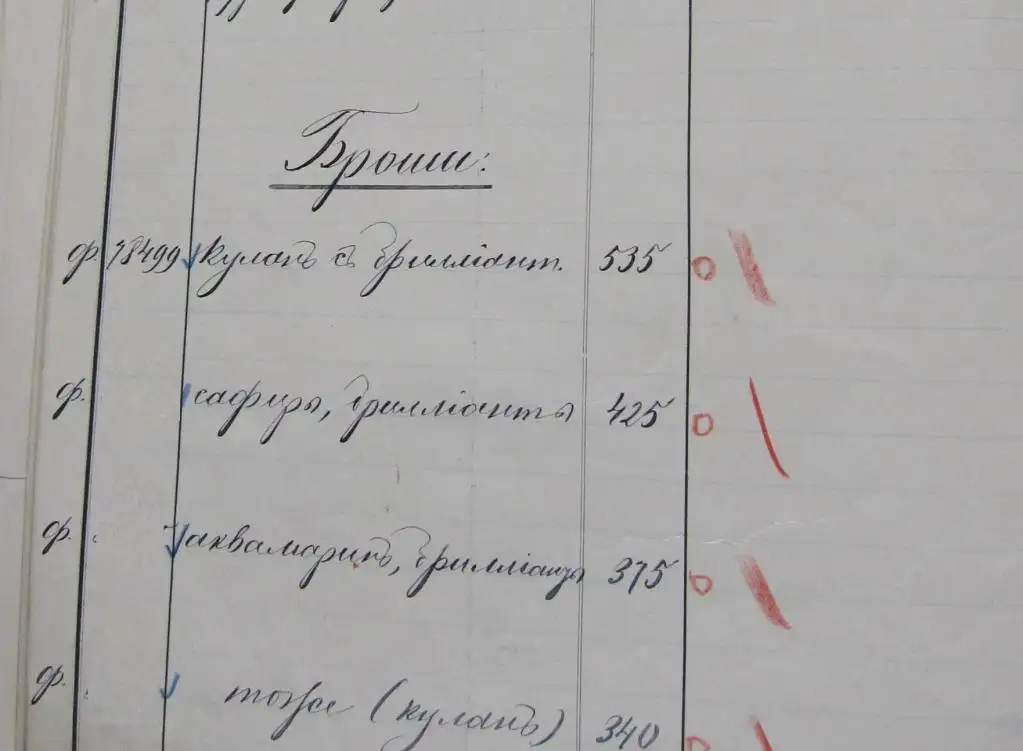 Броши:
ф. 78499 Куланъ съ брилліант. 535
ф. сафиры, брилліанты 425
ф. аквамаринъ, брилліанты 375
ф. тоже (куланъ) 340